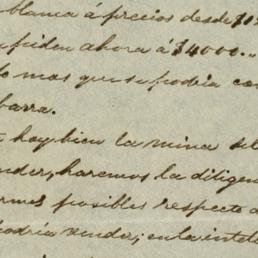 blanca á precios desde $1
piden ahora á $4000.
lo mas que se podria con
barra.
hoy bien la mina del
nder, haremos la diligen
ormes posibles respecto a
podria vender; en la intel